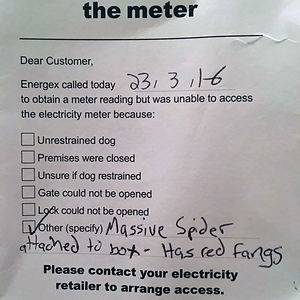 the meter
Dear Customer,
Energex called today 23, 3, 16
to obtain a meter reading but was unable to access
the electricity meter because:
Unrestrained dog
Premises were closed
Unsure if dog restrained
Gate could not be opened
Lock could not be opened
Other (specify) Massive Spider
attached to box - Has red fangs
Please contact your electricity
retailer to arrange access.